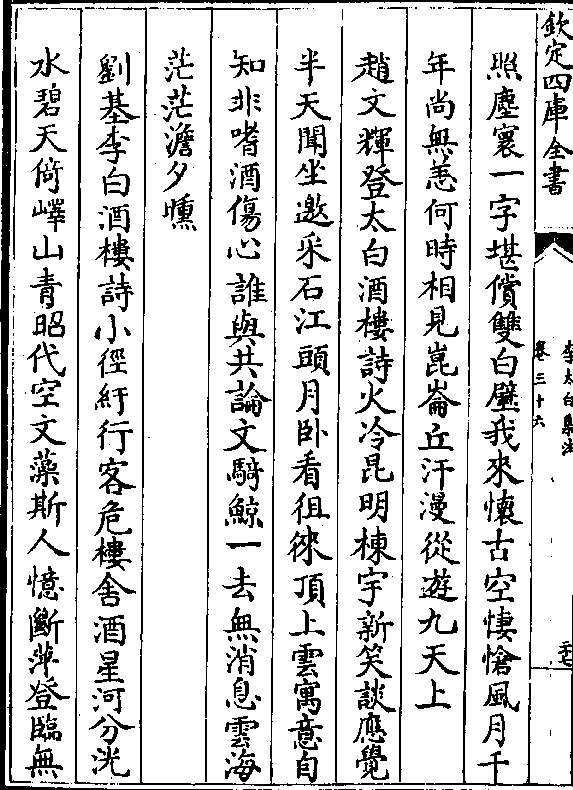 欽定四庫全書
李太白集注
卷三十六
照塵寰一字堪償雙白璧我來懷古空悽愴風月千
年尚無恙何時相見崑崙丘汗漫從遊九天上
趙文輝登太白酒樓詩火冷昆明棟宇新笑談應覺
半天聞坐邀采石江頭月卧看徂徠頂上雲寓意自
知非嗜酒傷心誰與共論文騎鯨一去無消息雲海
茫茫澹夕曛
劉基李白酒樓詩小徑紆行客危樓舍酒星河分洸
水碧天倚嶧山青昭代空文藻斯人憶斷萍登臨無